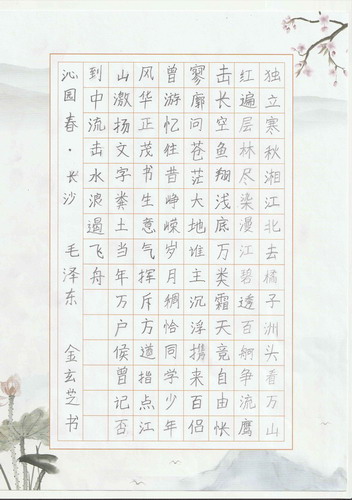 独立寒秋湘江北去橘子洲头看万山
红遍层林尽染漫江碧透百舸争流鹰
击长空鱼翔浅底万类霜天竟自由怅
寥廓问苍茫大地谁主沉浮携来百侣
曾游忆往昔峥嵘岁月稠恰同学少年
风华正茂书生意气挥斥方遒指点江
山激扬文字粪土当年万户侯曾记否
到中流击水浪遏飞舟
沁园春·长沙 毛泽东 金玄芝书